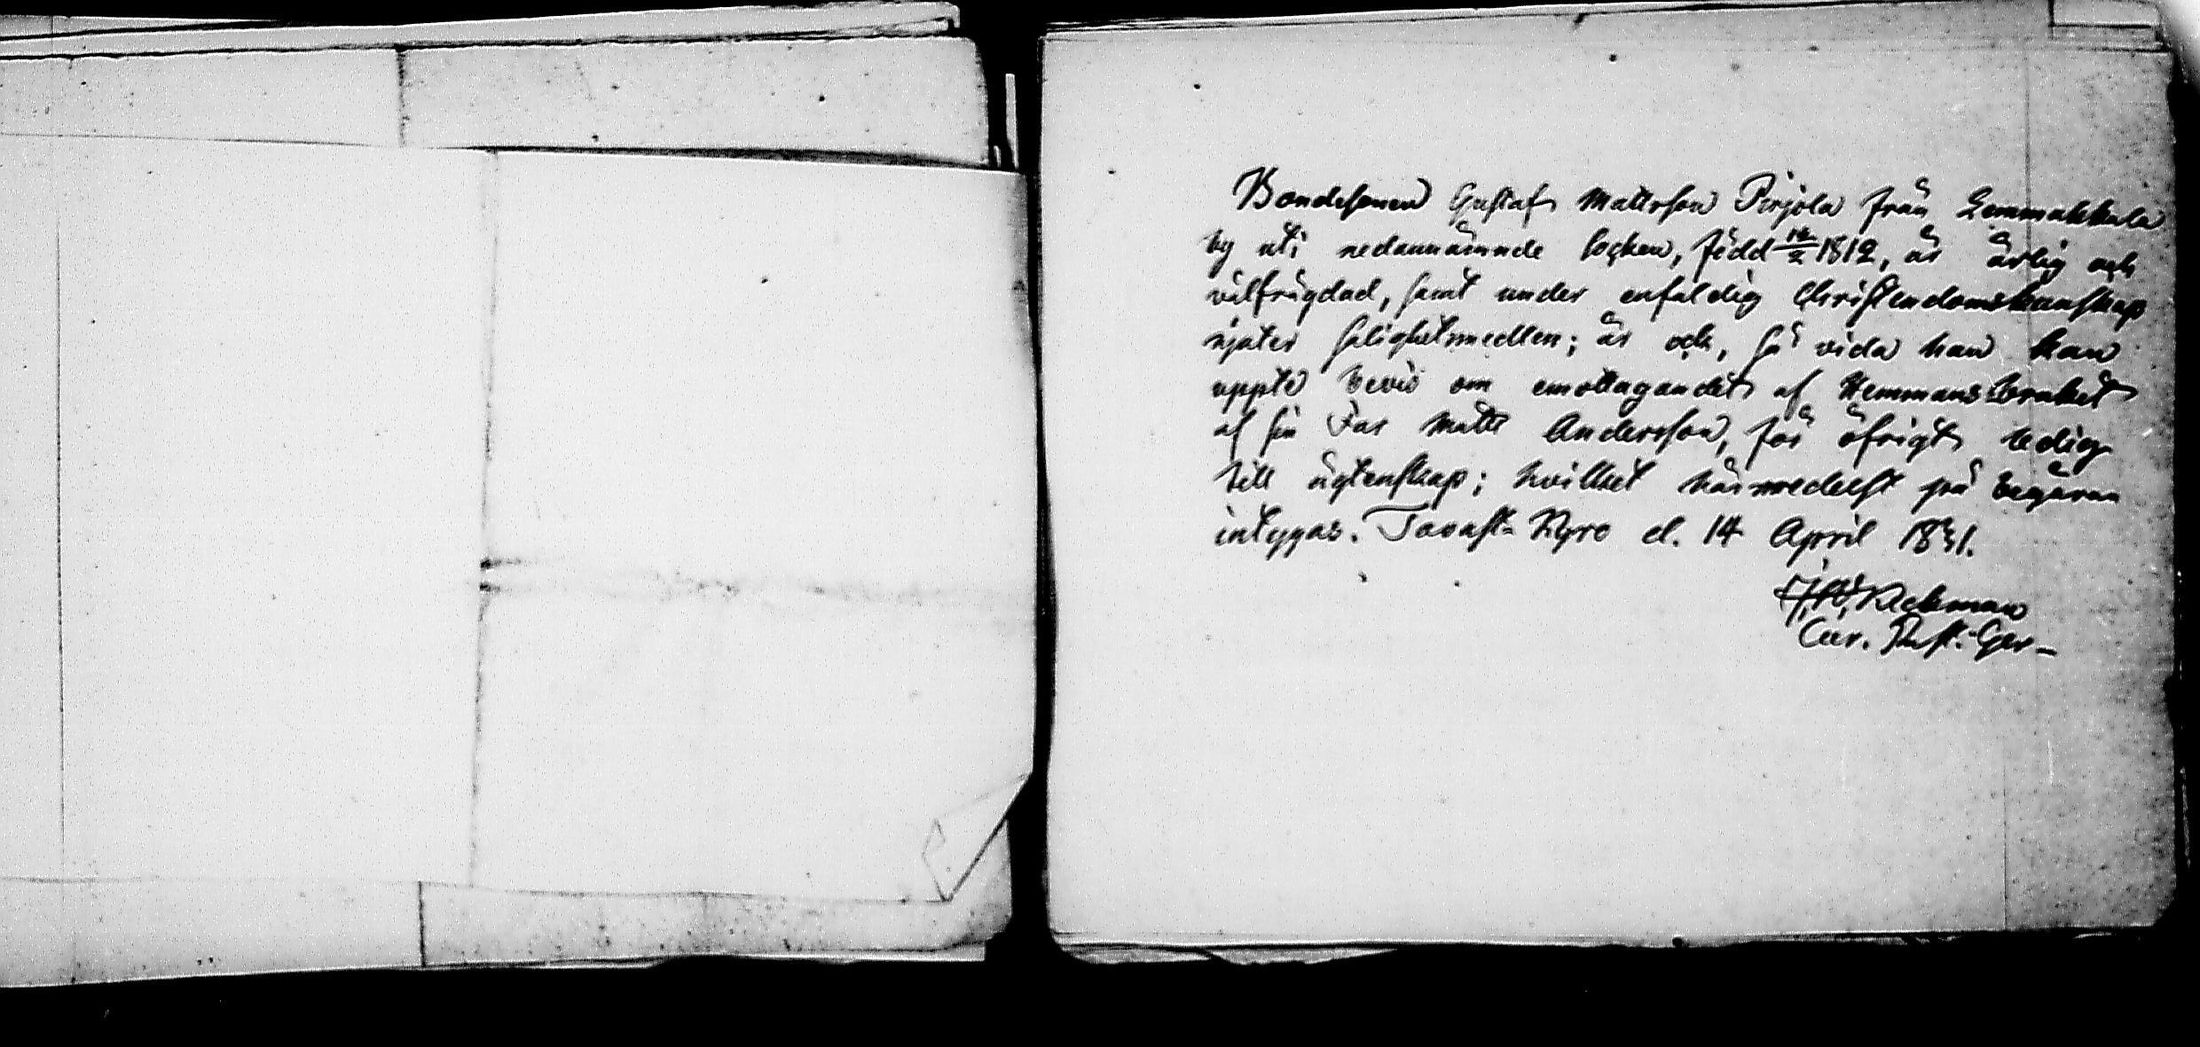 Bondesonen Gustaf Mattsson Pirjola från Lemmakkala
by uti nedannämnde Socken, född 1812, är ärlig och
välfrägdad, samt under enfaldig Christendomskunskap
njuter salighetsmedlen; är och, så vida han kan
uppte bevis om emottagandet af Hemmansbruket
af sin Far Matts Andersson, för öfrigt ledig
till ägtenskap; hvilket härmedelst på begäran
intygas. Tavast-Kyro d. 14 April 1831.
Cur. Past. Ger-